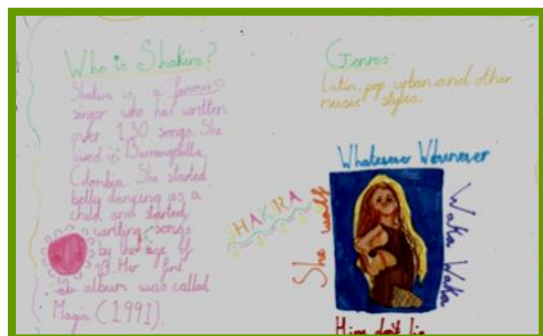 Who is Shakira?
Shakira is a famous
singer who has written
over 130 songs. She
lived in Barranquilla,
Colombia. She started
belly dancing as a
child and started
writing songs
by the age of
Her first
album were called
Magia (1991).
SHAKIRA
Genres:
Latin, pop, urban and other
music styles.
Whatesever Whenever
She wolf
Waka Waka
Hips don't lie